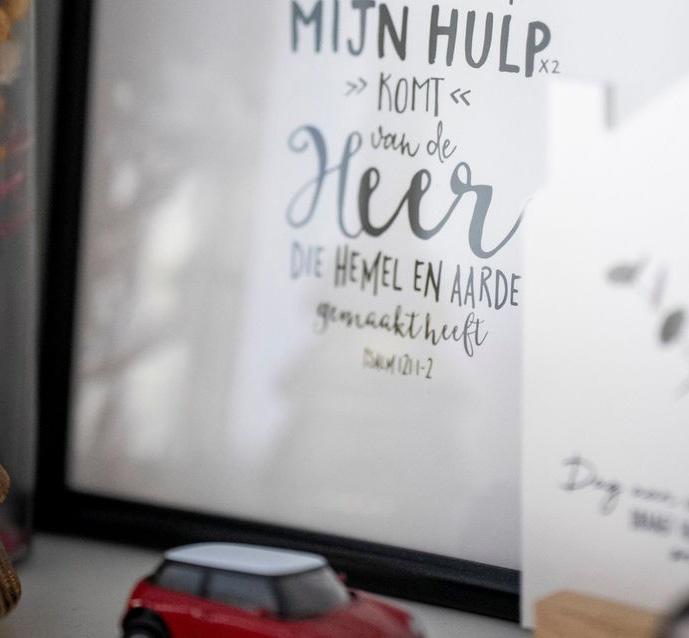 MIJN HULP x2
» KOMT «
van de
Heer
DIE HEMEL EN AARDE
gemaakt heeft
PSALM 121 1-2
Dag